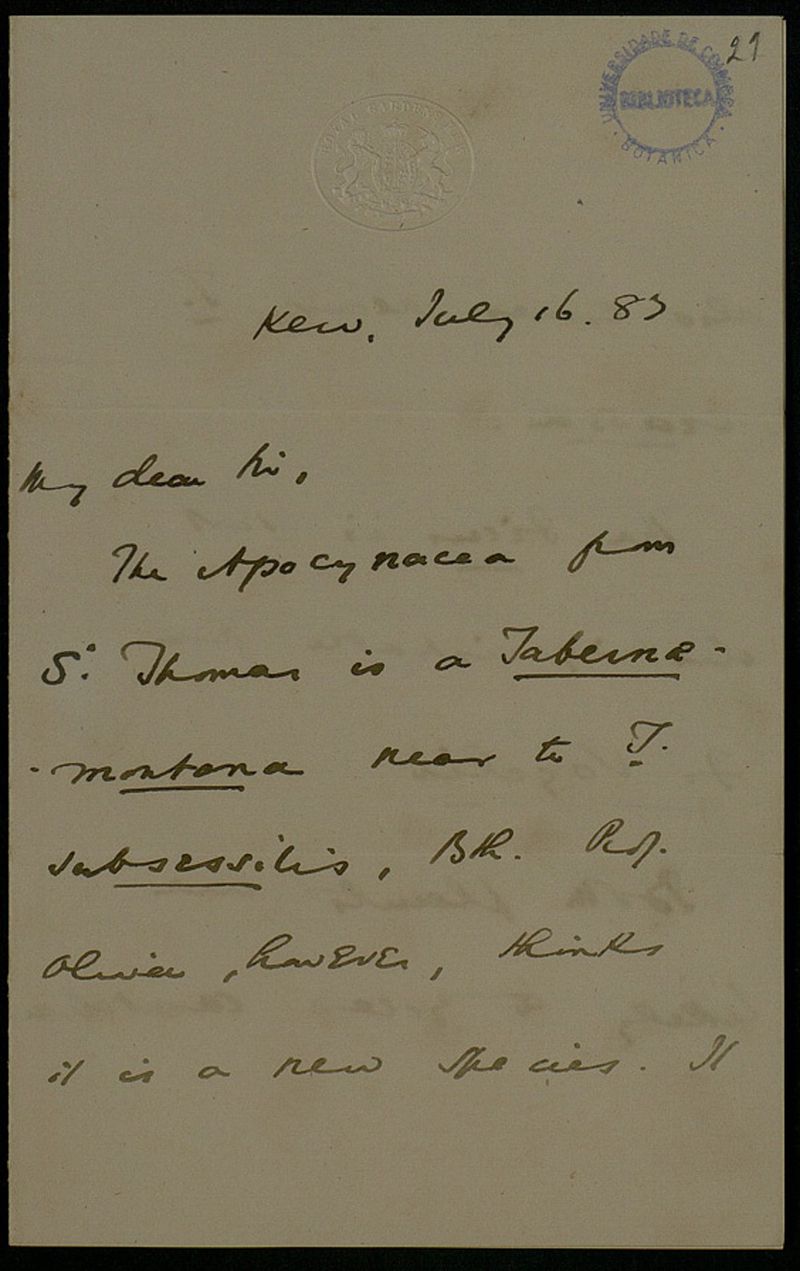 21
UNIVERSIDADE DE COIMBRA
BIBLIOTECA
BOTANICA
ROYAL GARDENS KEW
Kew, July 16. 83
My dear Sir,
The Apocynacea from
St. Thomas is a Tabernæ-
-montana near to T.
subsessilis, Bth. Prof.
Oliver, however, thinks
it is a new species. It